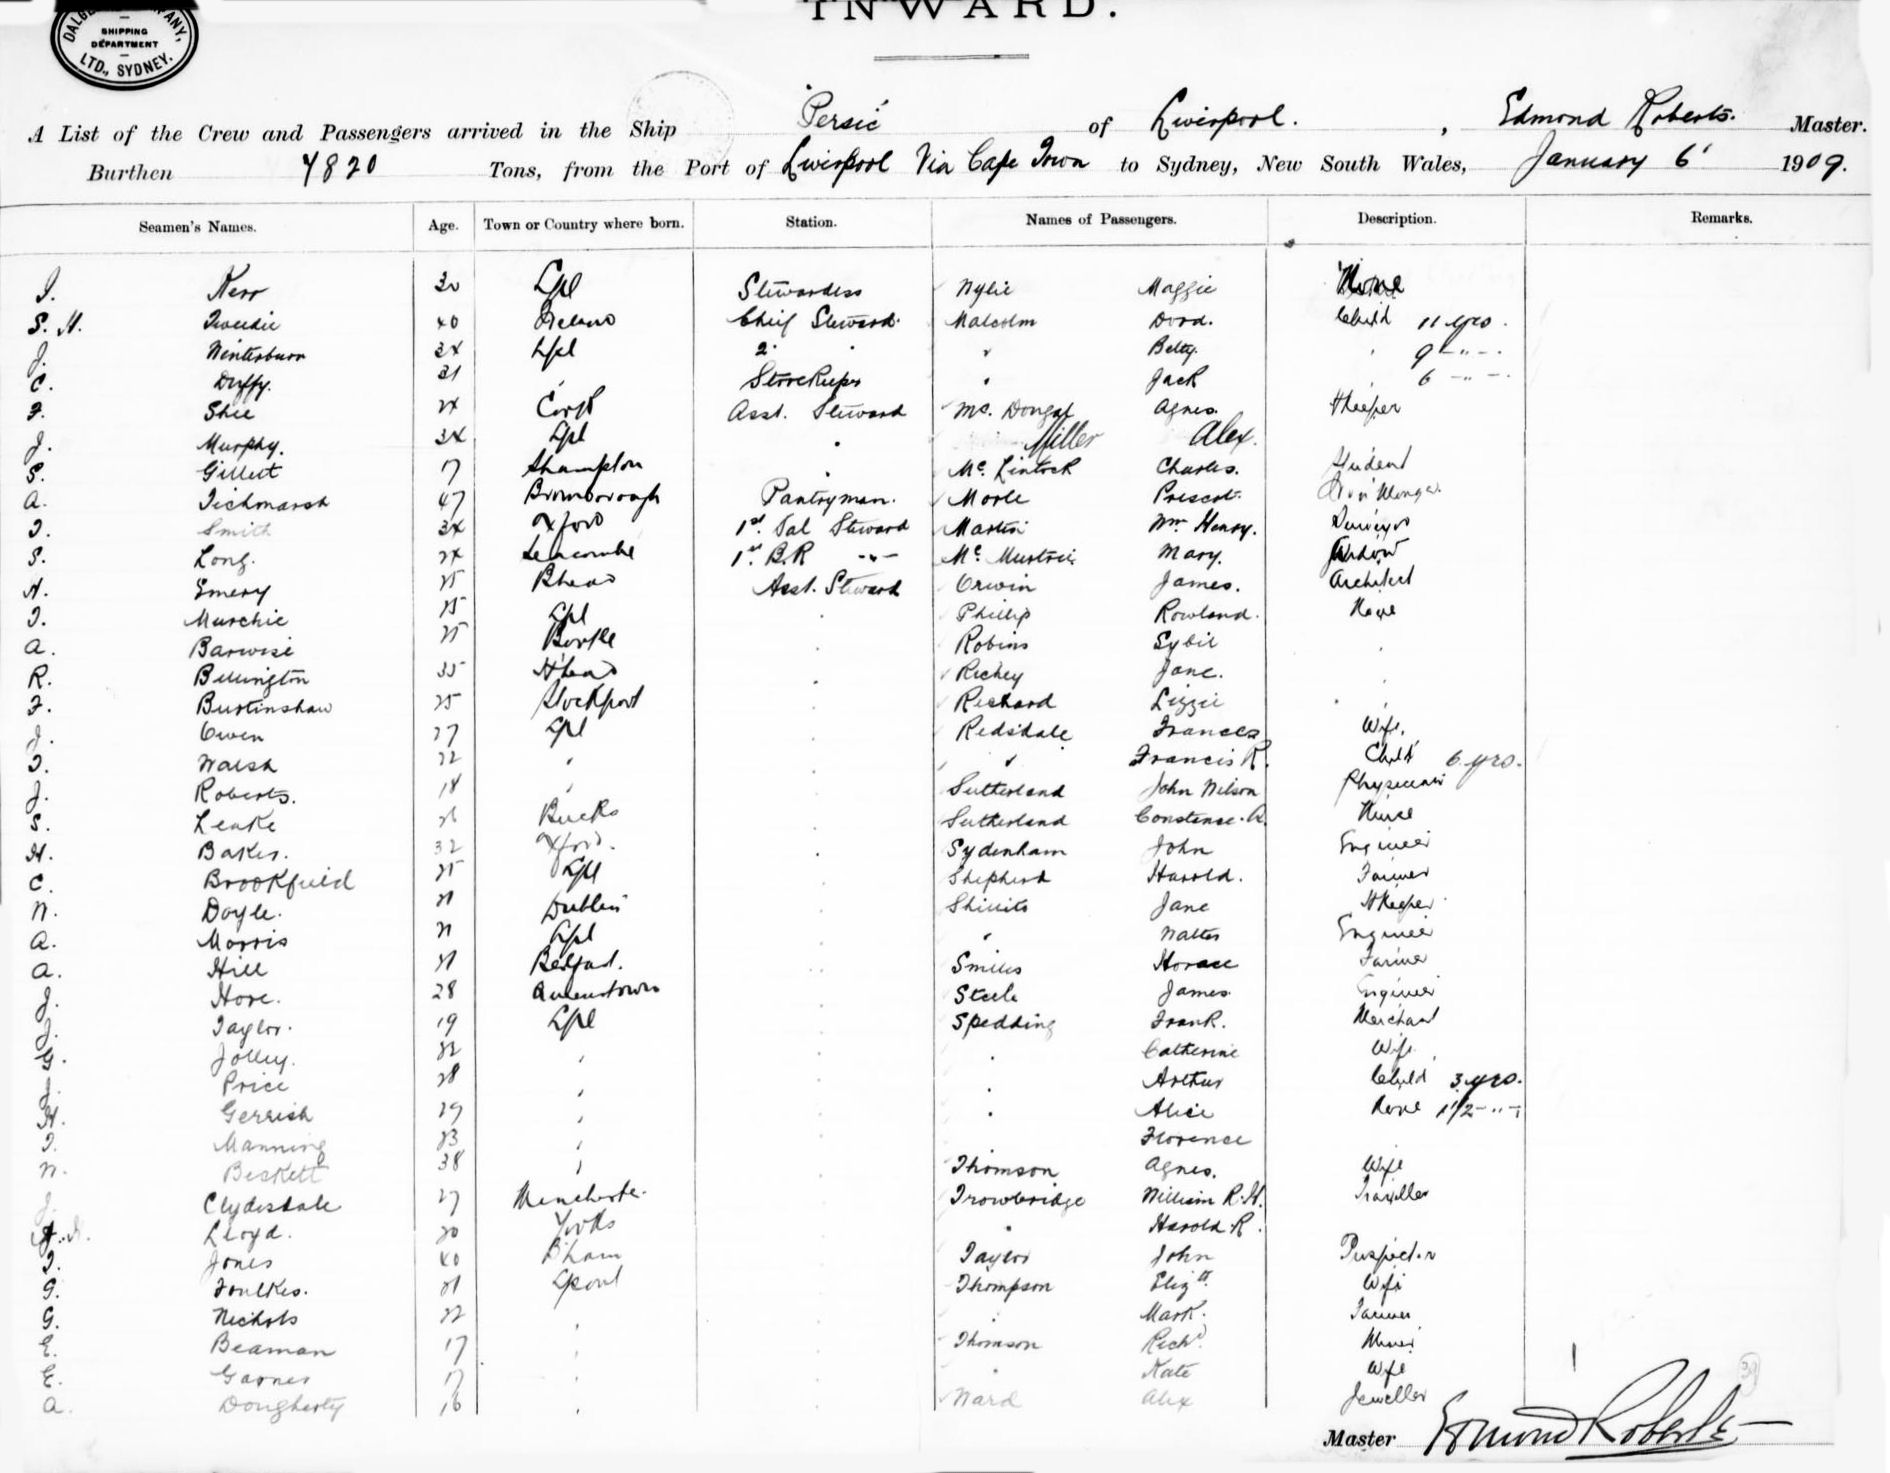 INWARD.
DALGETY & COMPANY, LTD., SYDNEY.
SHIPPING
DEPARTMENT
A List of the Crew and Passengers arrived in the Ship "Persic" of Liverpool. , Edmond Roberts. Master.
Burthen 7820 Tons, from the Port of Liverpool Via Cape Town to Sydney, New South Wales, January 6' 1909.
Seamen's Names. Age. Town or Country where born. Station. Names of Passengers. Description. Remarks.
I. Kerr 30 Lpl Stewardess Wylie Maggie
S. H. Tweedie 40 Ireland Chief Steward Malcolm Dord. Child 11 yrs.
J. Winterburn 34 Lpl 2 " " Betty. " 9 - " -
C. Duffy. 31 " Storekeeper " Jack " 6 - " -
F. Shee 24 Cork Asst. Steward Mc. Dougal Agnes. Hkeeper
J. Murphy. 34 Lpl " Miller Alex.
S. Gillett 17 Shampton " Mc. Lintock Charles. Student
A. Tichmarsh 47 Bromborough Pantryman. Moore Prescot. Iron Monger
T. Smith 34 Oxford 1st. Sal Steward Martin Wm Henry. Surveyor
S. Long. 24 Seacombe 1st. B.R - " - Mary. Widow
H. Emery 25 Bhead Asst. Steward Orwin James. Architect
T. Murchie 25 Lpl " Phillip Rowland. None
A. Barwise 25 Bootle " Robins Sybil "
R. Billington 35 B'head " Richey Jane. "
F. Burtinshaw 25 Stockport " Richard Lizzie "
J. Owen 27 Lpl " Redsdale Frances Wife.
T. Walsh 22 " " " Francis R. Child 6 yrs.
J. Roberts. 18 " " Sutherland John Wilson Physician
S. Leake Bucks " Sutherland Constance. A. Nurse
H. Baker. 32 Oxford. " Sydenham John Engineer
C. Brookfield 25 Lpl " Shepherd Harold. Farmer
W. Doyle. 21 Dublin " Jane Hkeeper
A. Morris 21 Lpl " " Walter Engineer
A. Hill 21 Belfast. " Smiles Horace Farmer
J. Hore. 28 Queenstown " Steele James Engineer
J. Taylor. 19 Lpl " Spedding Frank. Merchant
G. Jolley. 22 " " " Catherine Wife.
J. Price 28 " " " Arthur Child 3 yrs.
H. Gerrish 29 " " " Alice None 1 1/2 - " -
T. Manning 23 " " Florence
W. Beckett 38 " " Thomson Agnes. Wife
J. Clydesdale 27 Manchester. " Trowbridge William R. H. Traveller
Lloyd. 20 Yorks " " Harold R.
T. Jones 40 B'ham " Taylor John Inspector
G. Foulkes. 21 Lpool " Thompson Elizth. Wife
G. Nichols 22 " " " Mark. Farmer
E. Beaman 17 " " Thomson Richd Miner
E. Garner 17 " " " Kate Wife
A. Dougherty 16 " " Ward Alex Jeweller
Master Edmond Roberts